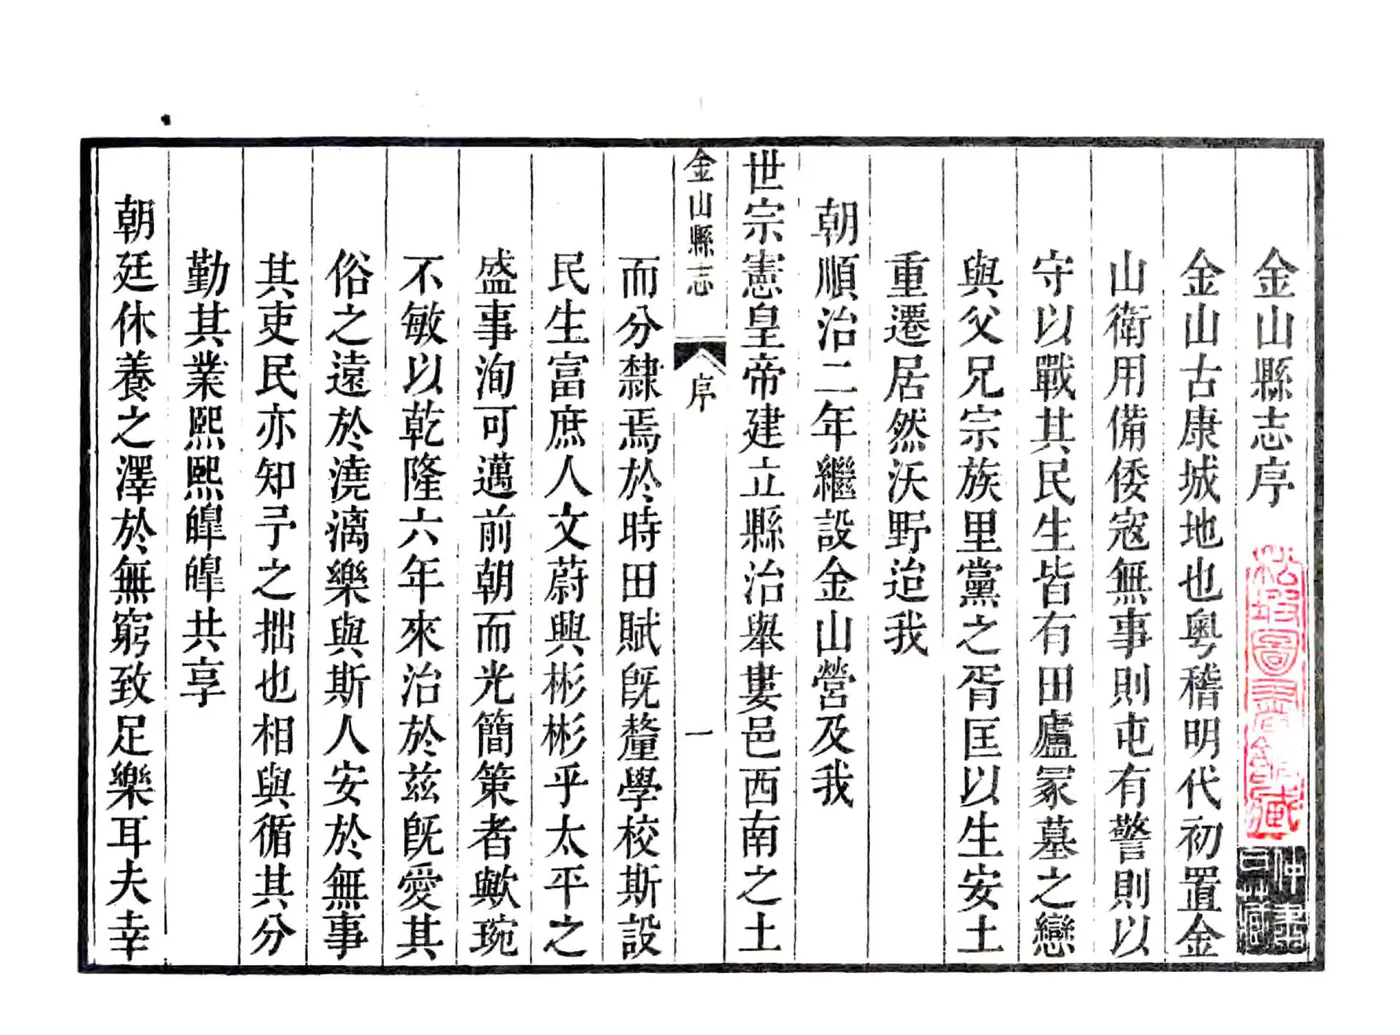 金山縣志序
金山古康城地也粵稽明代初置金
山衛用備倭寇無事則屯有警則以
守以戰其民生皆有田廬冢墓之戀
與父兄宗族里黨之胥匡以生安土
重遷居然沃野迨我
朝順治二年繼設金山營及我
世宗憲皇帝建立縣治舉婁邑西南之土
金山縣志
序
一
而分隸焉於時田賦旣釐學校斯設
民生富庶人文蔚興彬彬乎太平之
盛事洵可邁前朝而光簡策者歟琬
不敏以乾隆六年來治於兹旣愛其
俗之遠於澆漓樂與斯人安於無事
其吏民亦知予之拙也相與循其分
勤其業熙熙皞皞共享
朝廷休養之澤於無窮致足樂耳夫幸